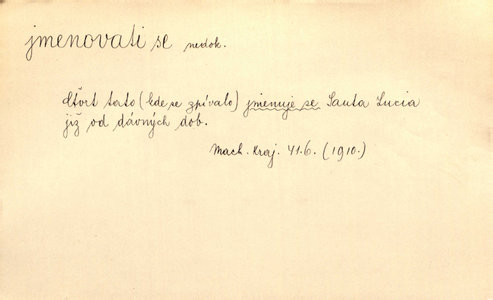 jmenovati se nedok.
čtvrt tato (kde se zpívalo) jmenuje se Santa Lucia
již od dávných dob.
Mach. Kraj. 41.6. (1910.)